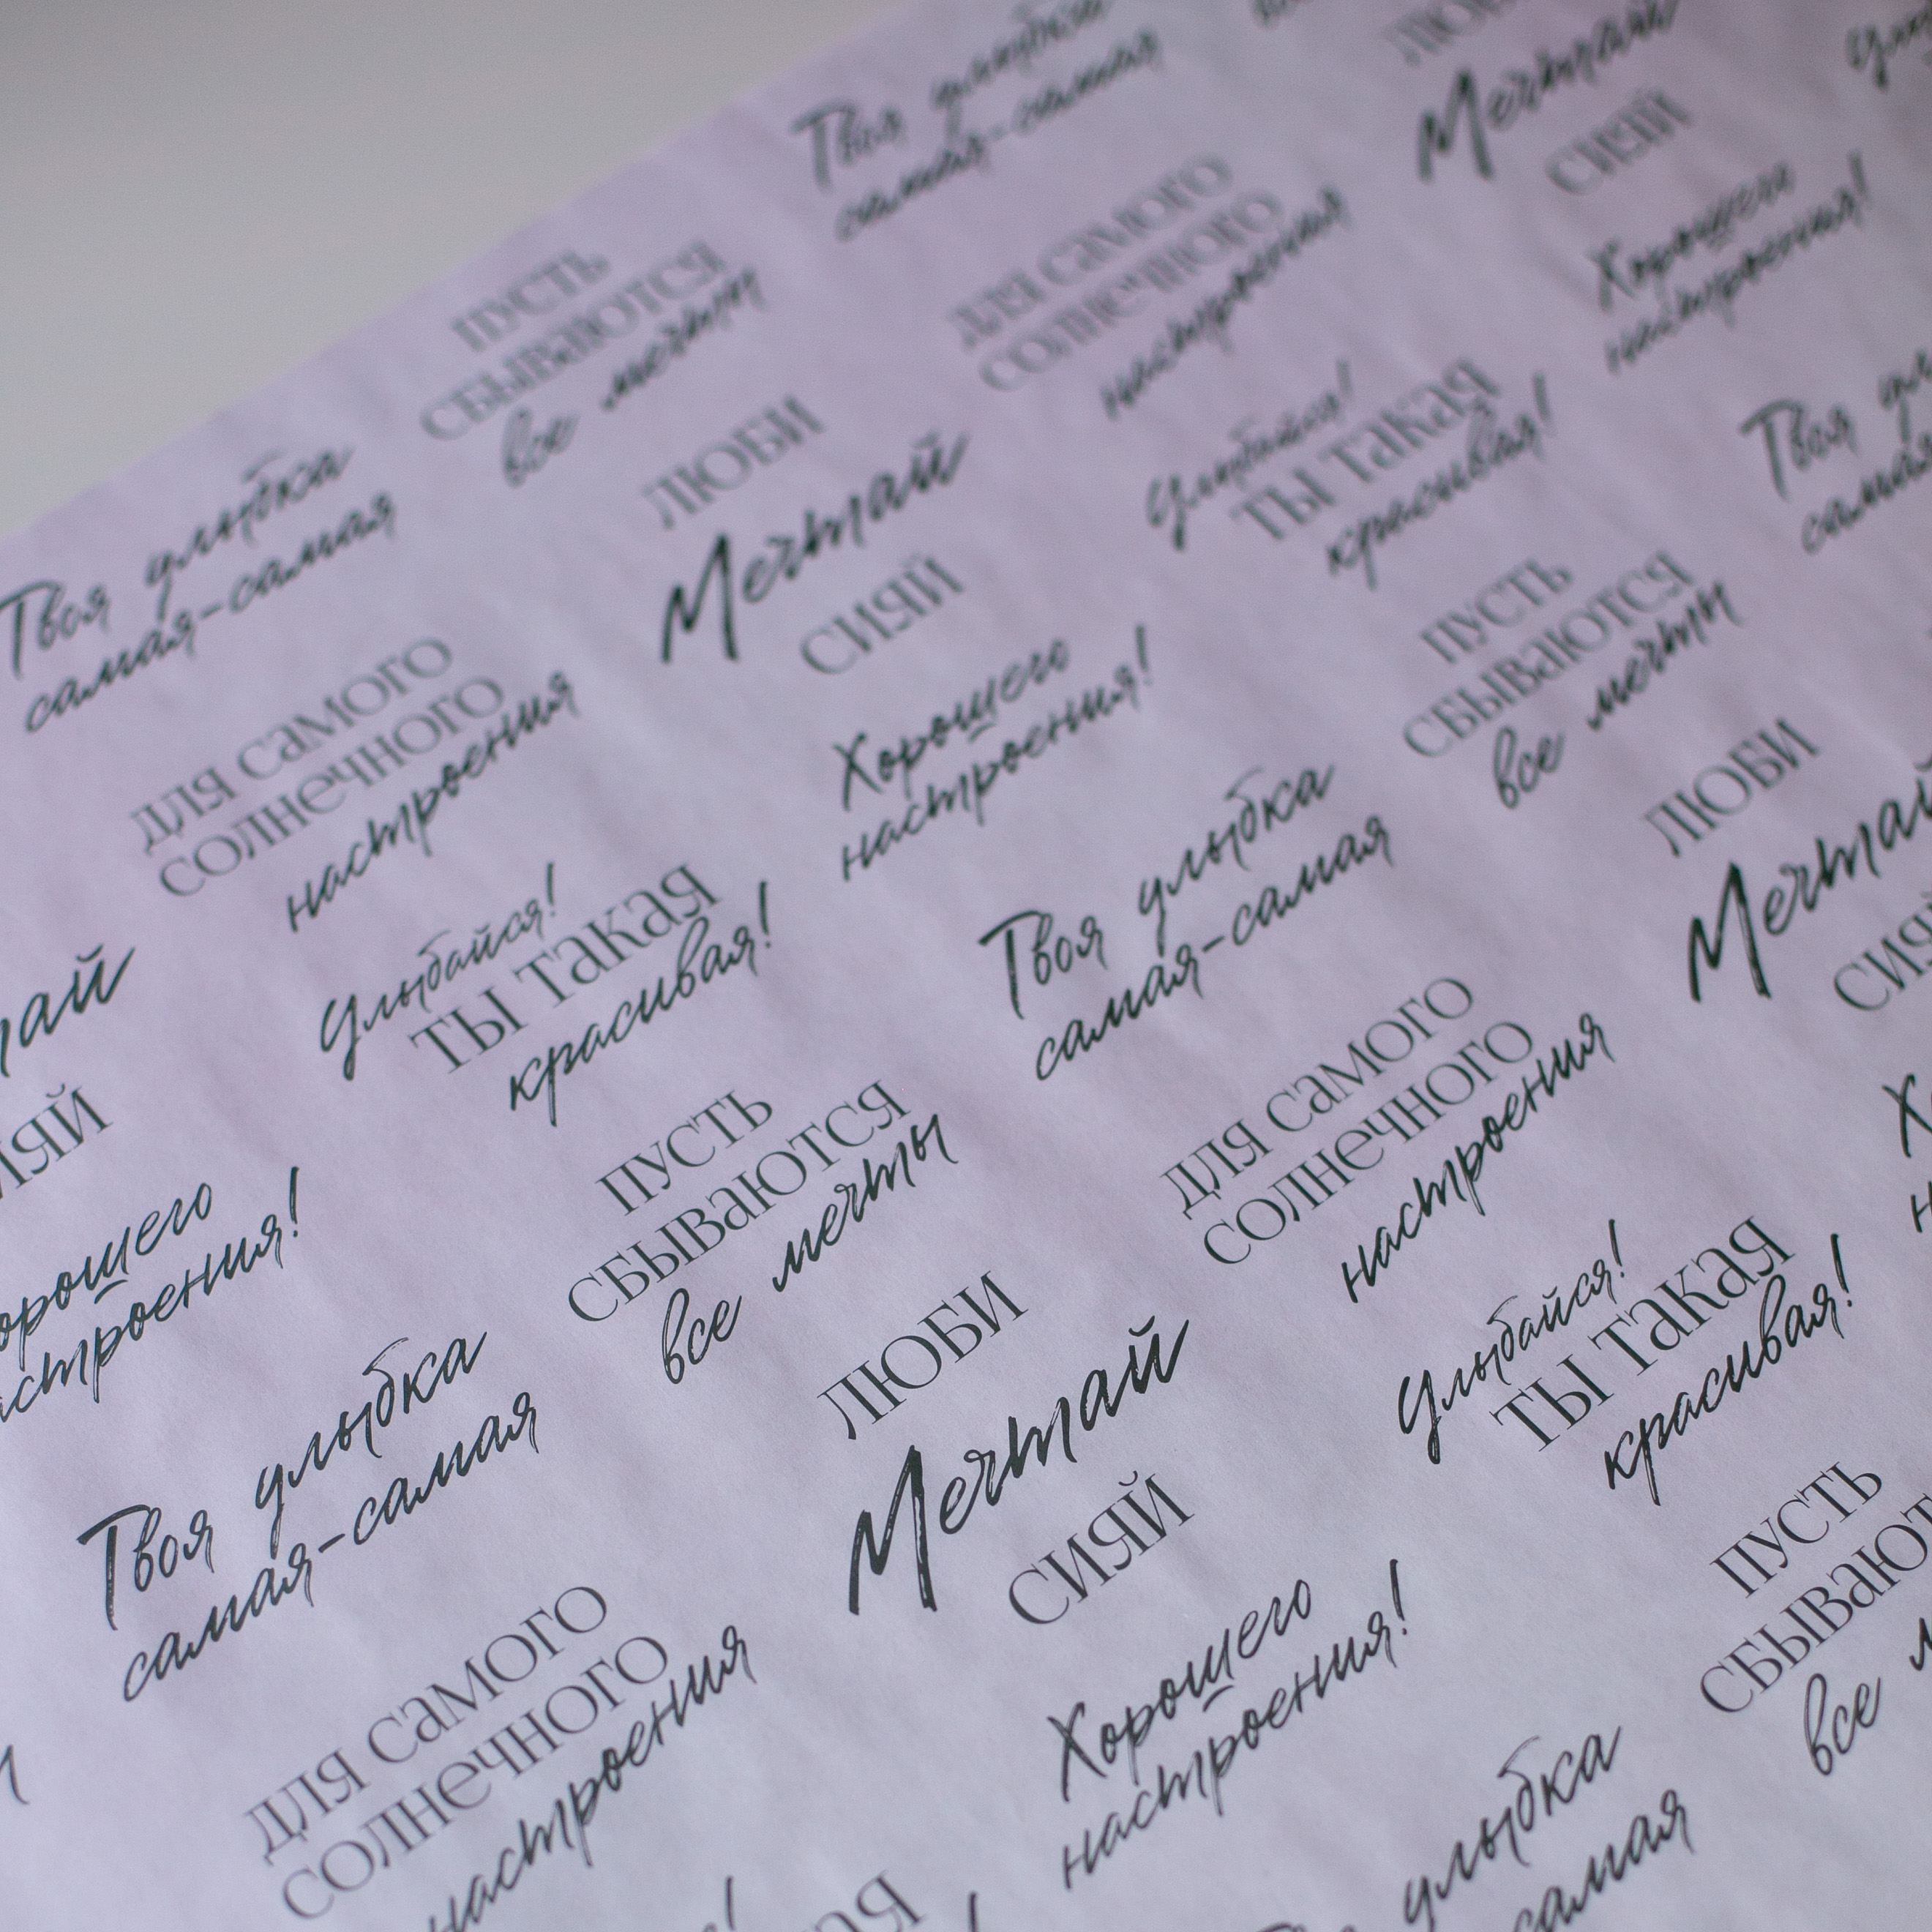 Твоя улыбка
самая-самая
Мечтай
СИЯЙ
ПУСТЬ
СБЫВАЮТСЯ
все мечты
ДЛЯ САМОГО
СОЛНЕЧНОГО
настроения
Хорошего
настроения!
Твоя улыбка
самая-самая
ЛЮБИ
Мечтай
СИЯЙ
Улыбайся!
ТЫ ТАКАЯ
красивая!
Твоя
самая
ДЛЯ САМОГО
СОЛНЕЧНОГО
настроения
Хорошего
настроения!
ПУСТЬ
СБЫВАЮТСЯ
все мечты
Улыбайся!
ТЫ ТАКАЯ
красивая!
Твоя улыбка
самая-самая
ЛЮБИ
Мечтай
СИЯЙ
ПУСТЬ
СБЫВАЮТСЯ
все мечты
ДЛЯ САМОГО
СОЛНЕЧНОГО
настроения
Твоя улыбка
самая-самая
ЛЮБИ
Мечтай
СИЯЙ
Улыбайся!
ТЫ ТАКАЯ
красивая!
ДЛЯ САМОГО
СОЛНЕЧНОГО
настроения
Хорошего
настроения!
ПУСТЬ
все
улыбка
самая